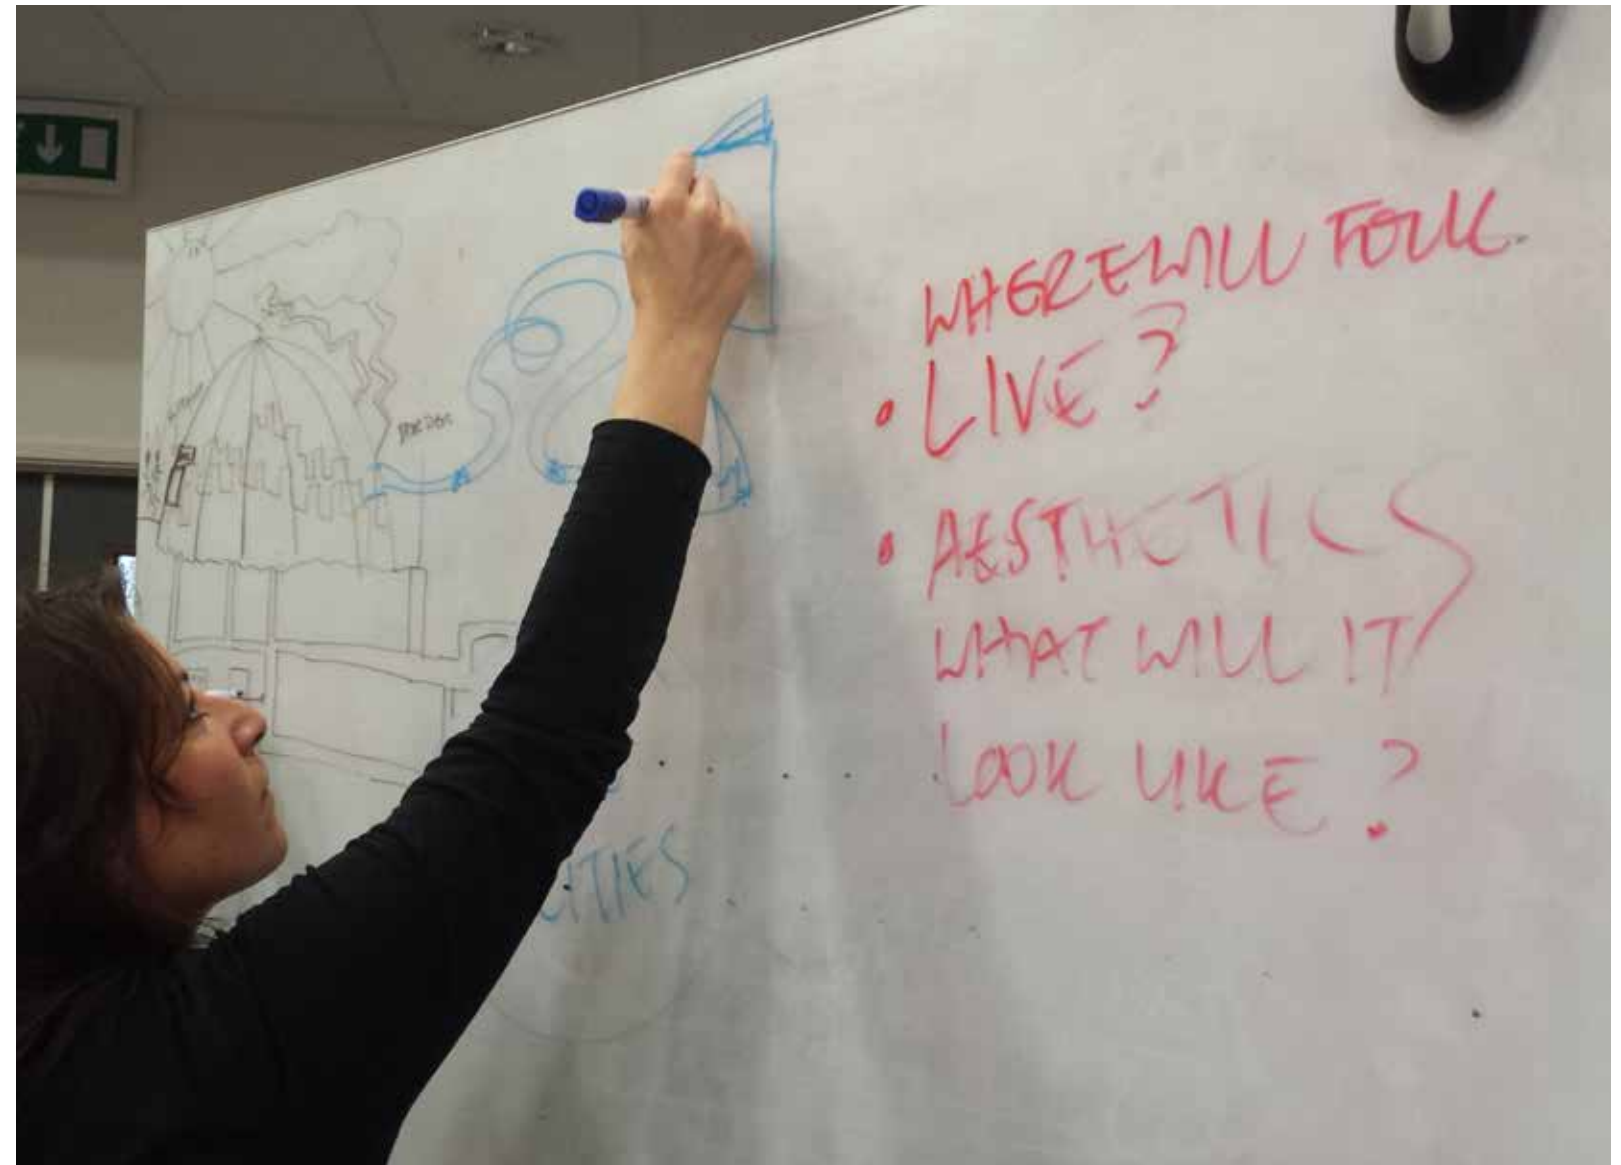 WHERE WILL FOLK
• LIVE?
• AESTHETICS
WHAT WILL IT
LOOK LIKE?